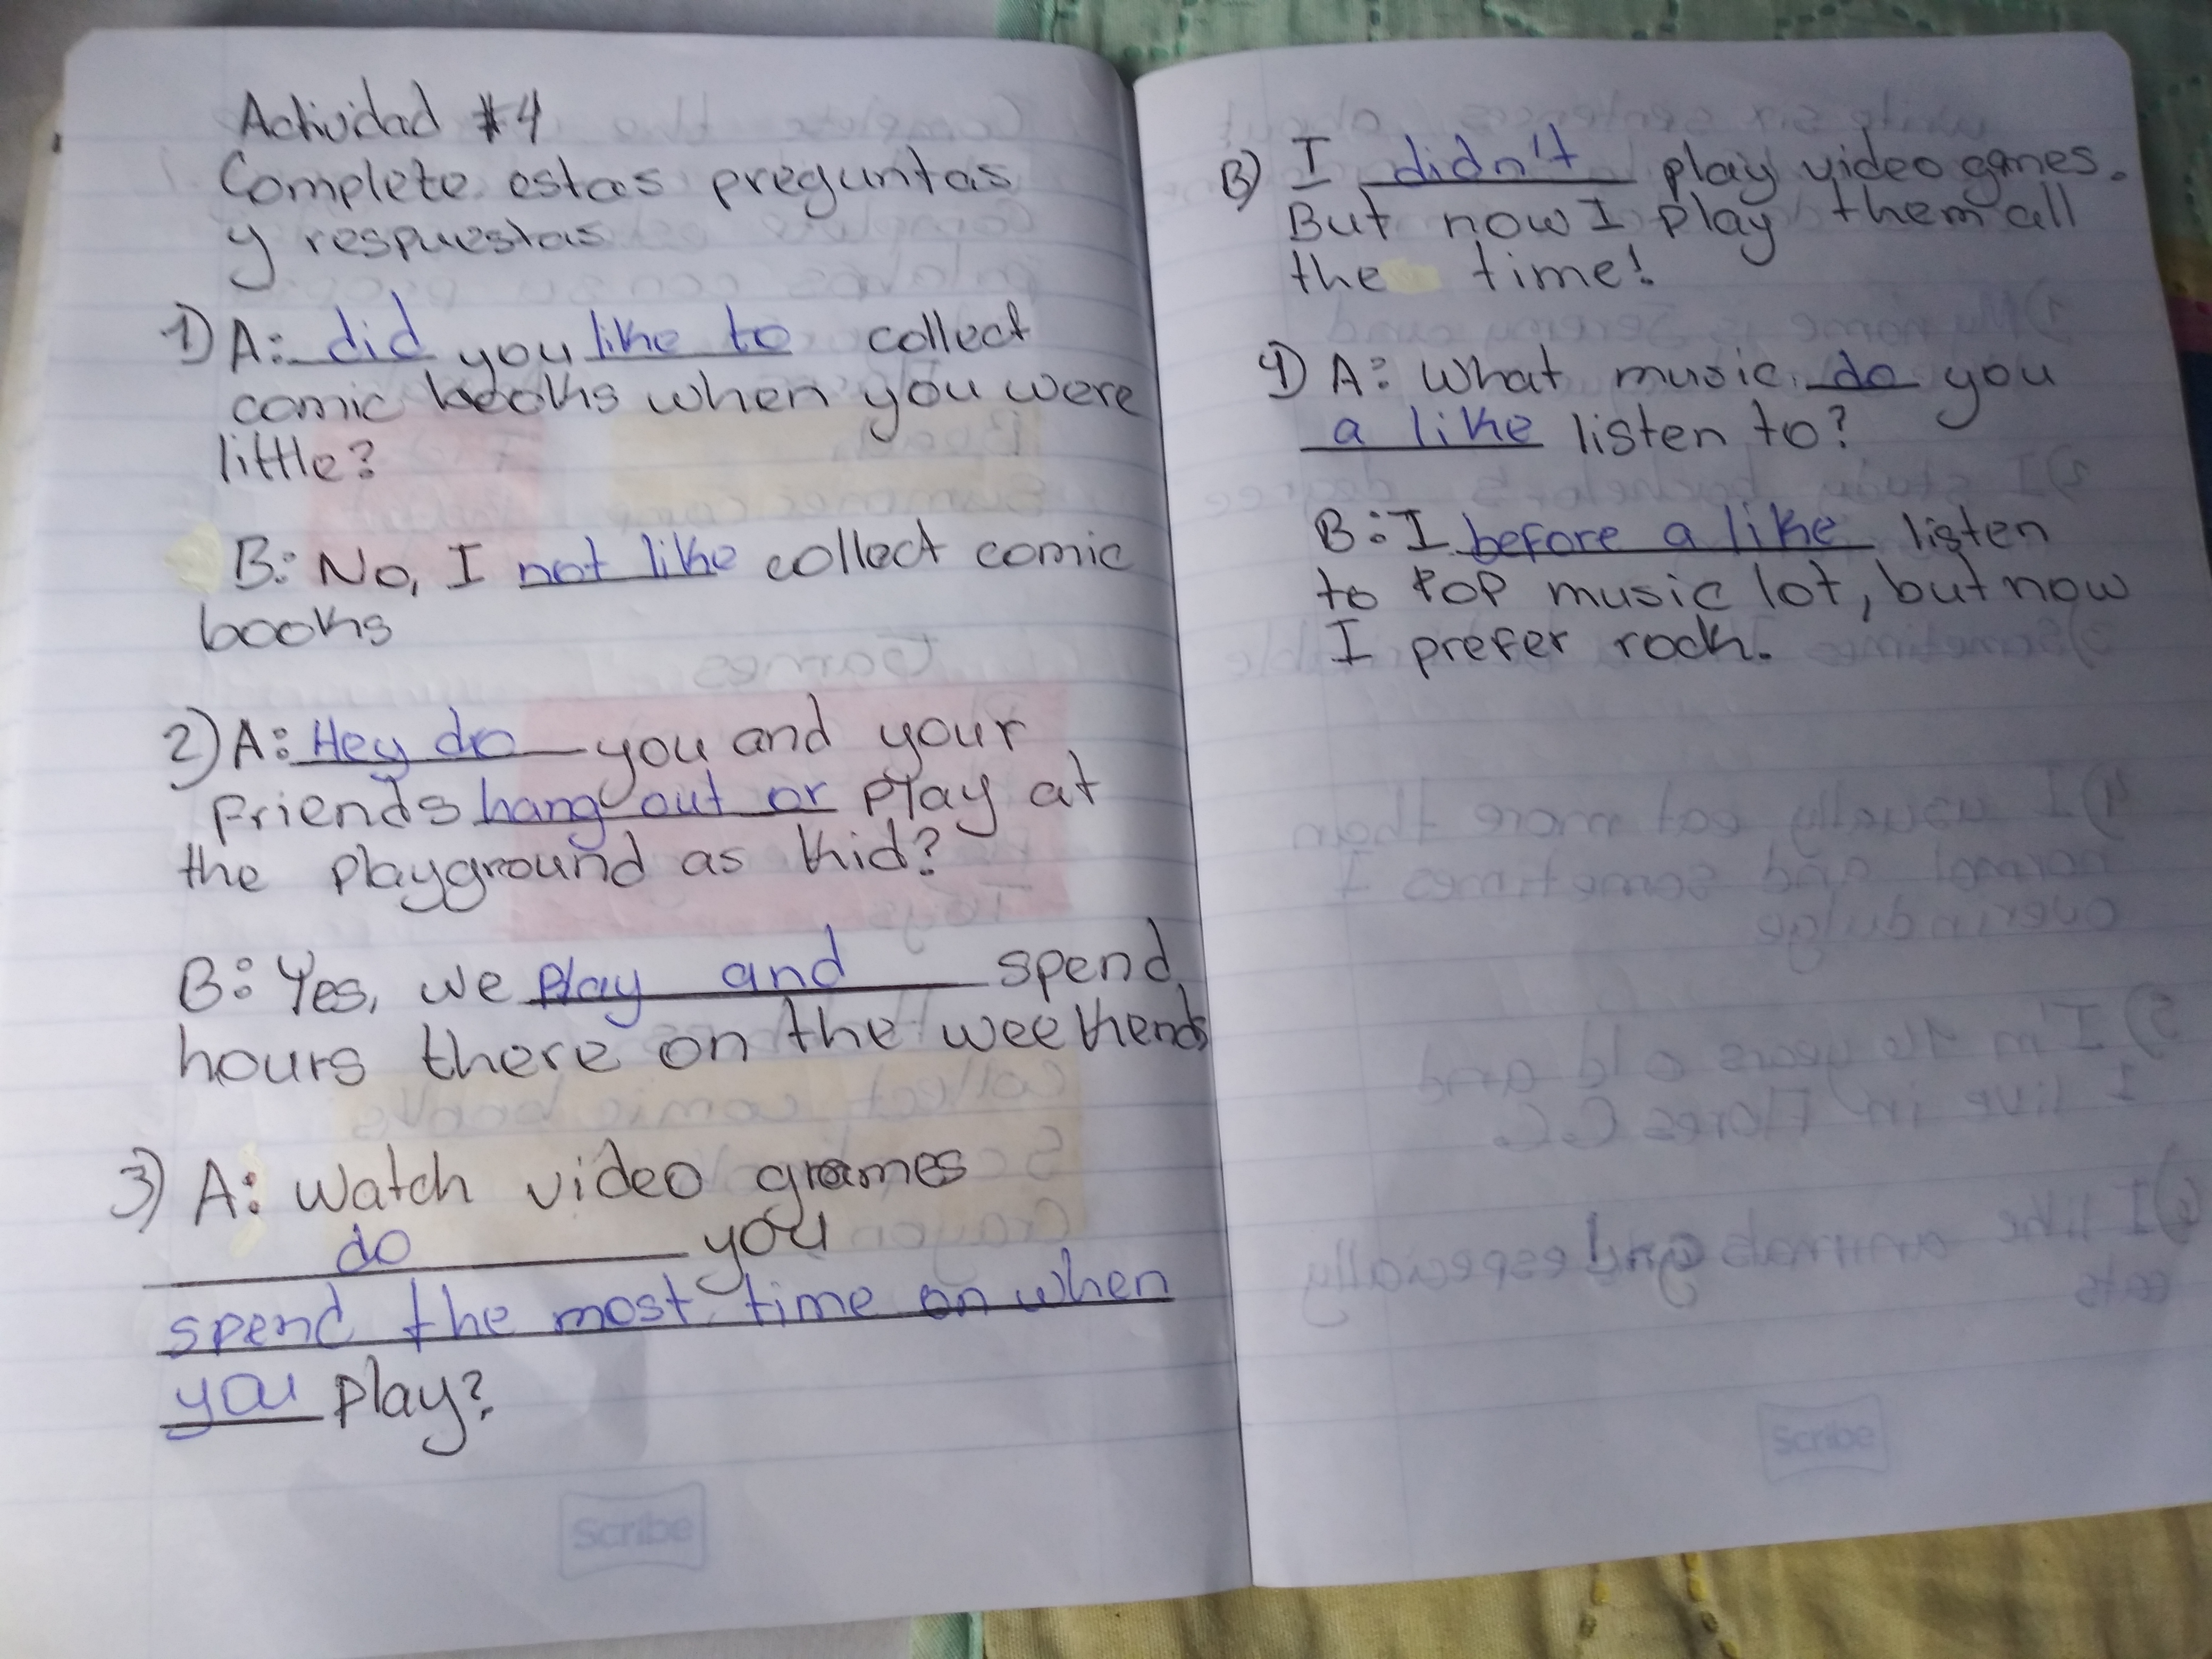 Actividad #4
Complete estas preguntas
y respuestas
1) A: did you like to collect
comic books when you were
little?
B: No, I not like collect comic
books
2) A: Hey do you and your
friends hang out or play at
the playground as kid?
B: Yes, we play and spend
hours there on the weekends
3) A: Watch video grames
do you
spend the most time on when
you play?
Scribe
B) I didn't play video games.
But now I play them all
the time!
4) A: What music do you
a like listen to?
B: I before a like listen
to pop music lot, but now
I prefer rock.
Scribe